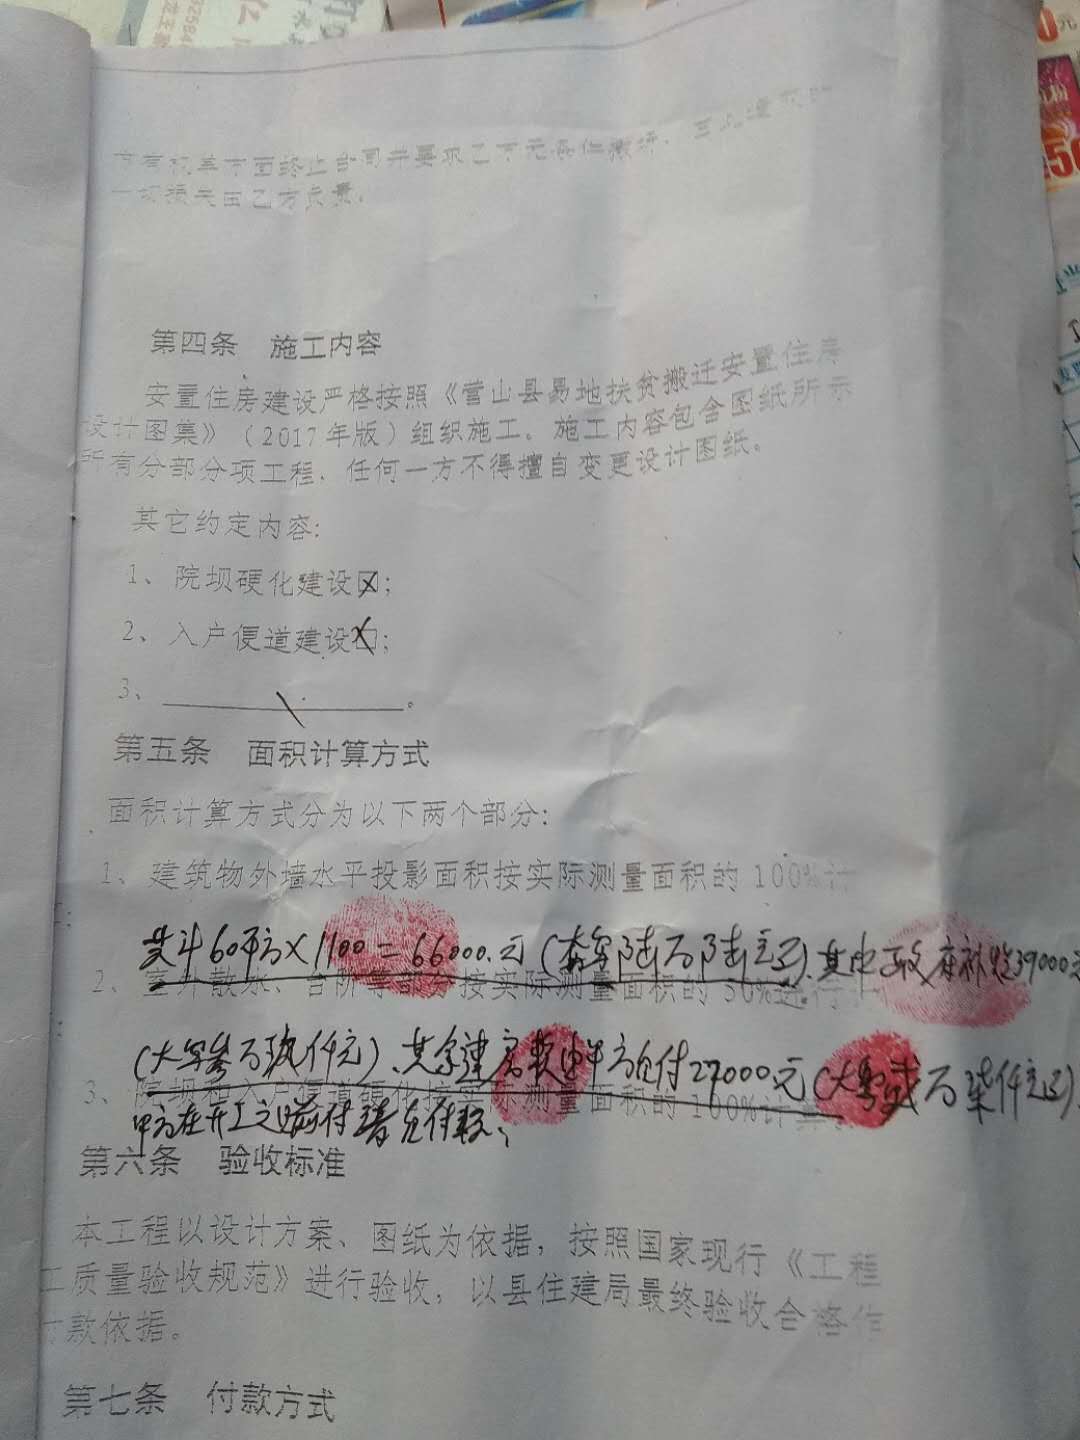 一切损失由乙方负责。
第四条 施工内容
安置住房建设严格按照《营山县易地扶贫搬迁安置住房
设计图集》（2017年版）组织施工。施工内容包含图纸所示
所有分部分项工程，任何一方不得擅自变更设计图纸。
其它约定内容：
1、院坝硬化建设☒；
2、入户便道建设☒；
3、
第五条 面积计算方式
面积计算方式分为以下两个部分：
1、建筑物外墙水平投影面积按实际测量面积的100%计
共计60平方×1100=66000.元（大写陆万陆仟元）.其中政府补贴39000元
2、室外散水、台阶等部分按实际测量面积的50%进行
（大写叁万玖仟元）、其余建房款由甲方自付27000元（大写贰万柒仟元），
3、院坝和入户便道硬化按实际测量面积的100%计算。
甲方在开工之前付清
第六条 验收标准
本工程以设计方案、图纸为依据，按照国家现行《工程
工质量验收规范》进行验收，以县住建局最终验收合格作
款依据。
第七条 付款方式